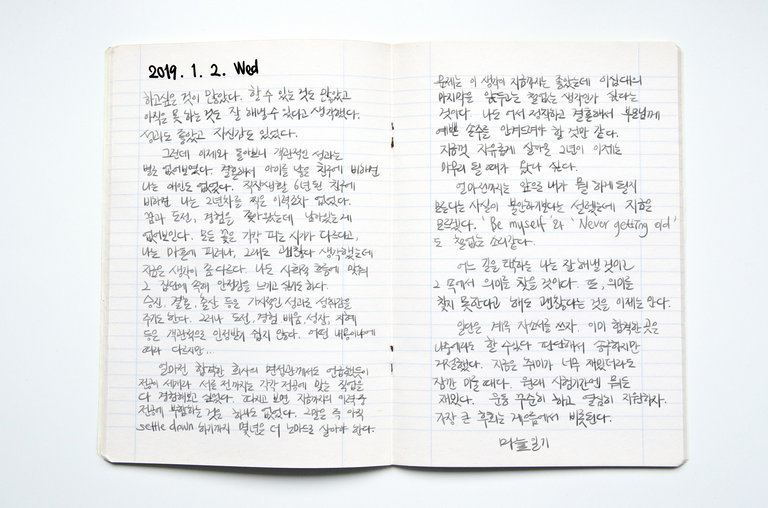 2019. 1. 2. Wed
하고싶은 것이 많았다. 할 수 있는 것도 많았고
아직은 못 하는 것도 잘 해낼 수 있다고 생각했다.
성과도 좋았고 자신감도 있었다.
그런데 이제와 돌아보니 객관적인 성과는
별로 없어보였다. 결혼해서 아이를 낳은 친구에 비하면
나는 애인도 없었다. 직장생활 6년 된 친구에
비하면 나는 2년차를 찍은 이력조차 없었다.
꿈과 도전, 경험을 쫓아왔는데 남아있는 게
없어보인다. 모든 꽃은 각각 피는 시기가 다르다고,
나는 마흔에 피려나, 그래도 괜찮다 생각했는데
지금은 생각이 좀 다르다. 나도 사회적 흐름에 맞춰
그 집단에 속해 안정감을 느끼고 싶기도 하다.
승진, 결혼, 출산 등은 가시적인 성과로 성취감을
주기도 한다. 그러나 도전, 경험, 배움, 성장, 지혜
등은 객관적으로 인정받기 쉽지 않다. 어떤 내용이냐에
따라 다르지만...
얼마전 합격한 회사의 면접관께서도 언급했듯이
전공 세 개와 서류 전까지는 각각 전공에 맞는 직업을
다 경험해보고 싶었다. 따지고 보면 지금까지의 이력 중
전공에 부합하는 것은 하나도 없었다. 그말은 즉 아직
settle down 하기까지 몇년은 더 노마드로 살아야 한다.
문제는 이 생각이 지금까지는 좋았는데 이십대의
마지막을 앞두고는 철없는 생각인가 싶다는
것이다. 나도 어서 정착하고 결혼해서 부모님께
예쁜 손주를 안겨드려야 할 것만 같다.
지금껏 자유롭게 살아온 2년이 이제는
마무리 될 때가 왔나 싶다.
얼마전까지는 앞으로 내가 뭘 하게 될지
모른다는 사실이 불안하기보다는 설렜는데 지금은
모르겠다. 'Be myself'와 'Never getting old'
도 철없는 소리같다.
어느 길을 택하든 나는 잘 해낼 것이고
그 속에서 의미를 찾을 것이다. 또, 의미를
찾지 못한다고 해도 괜찮다는 것을 이제는 안다.
일단은 계속 자소서를 쓰자. 이미 합격한 곳은
나중에라도 할 수 있다 판단해서 승낙하지만
거절했다. 지금은 취미가 너무 재밌더라도
잠깐 미룰 때다. 원래 시험기간엔 뭐든
재밌다. 운동 꾸준히 하고 열심히 지원하자.
가장 큰 후회는 게으름에서 비롯된다.
마늘일기